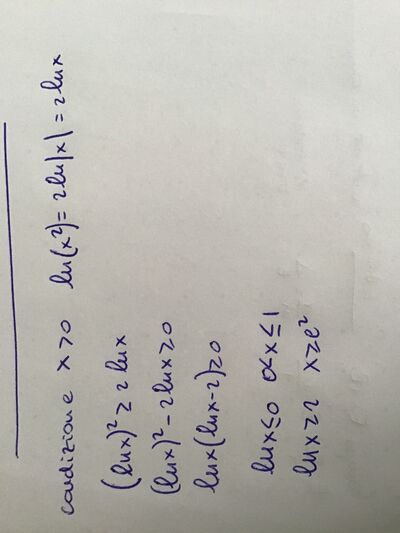 condizione x>0 ln(x²)= 2ln|x| = 2lnx
(lnx)² ≥ 2lnx
(lnx)² - 2lnx≥0
lnx(lnx-2)≥0
lnx≤0 0<x≤1
lnx≥2 x≥e²